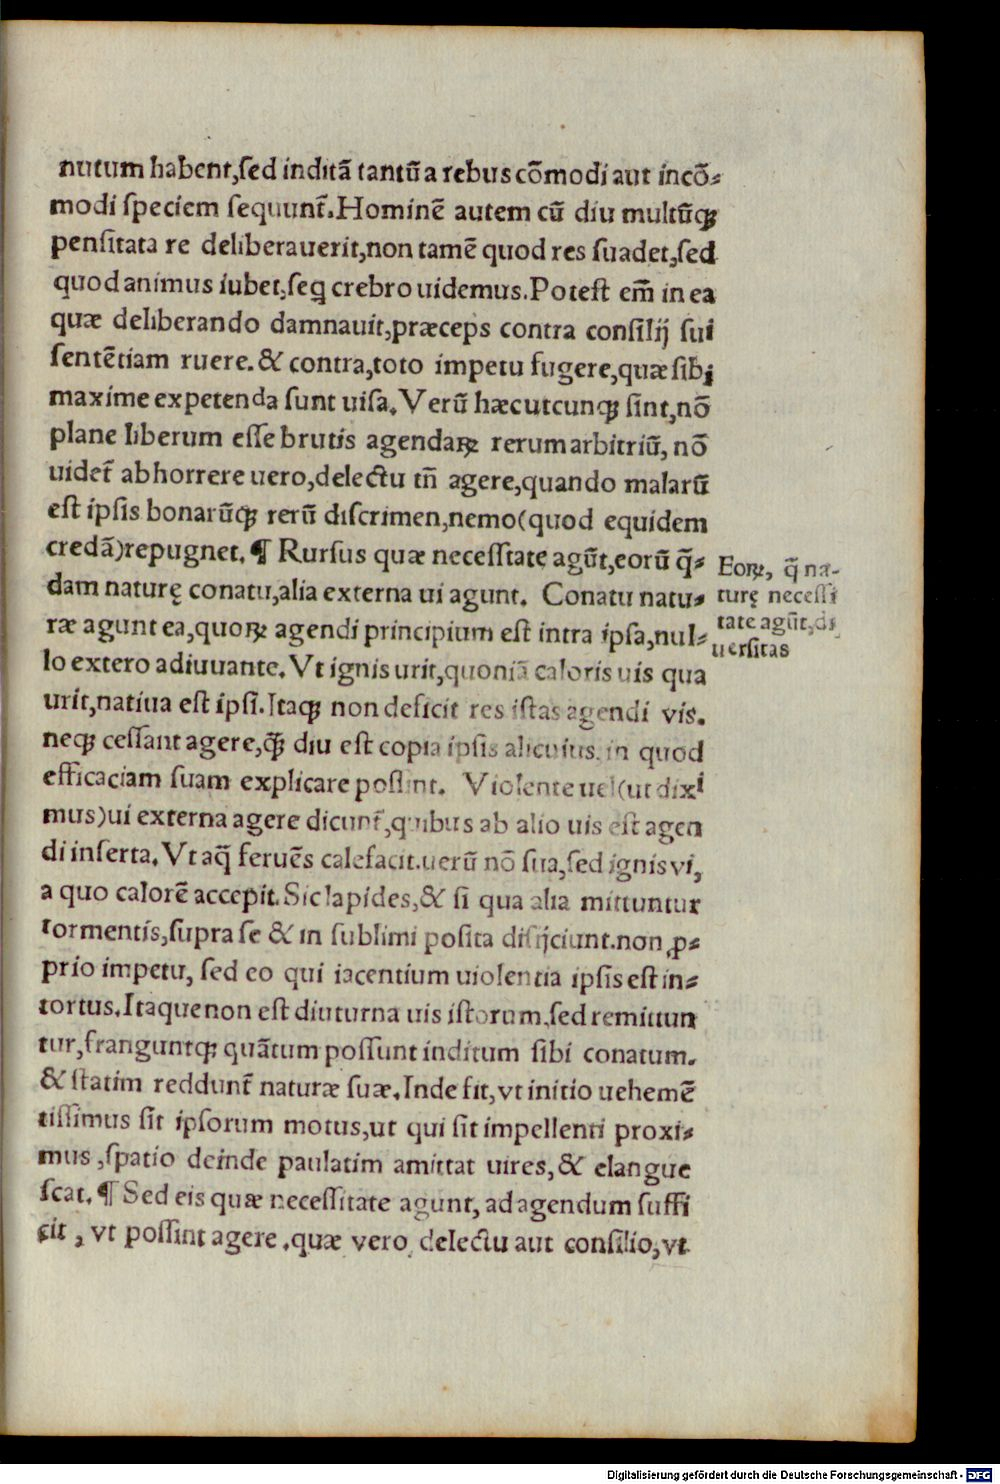 nutum habent,sed inditā tantū a rebus cōmodi aut incō⸗
modi speciem sequunt̃.Hominē autem cū diu multūqꝫ
pensitata re deliberauerit,non tamē quod res suadet,sed
quod animus iubet,seq̃ crebro uidemus.Potest em̃ in ea
quæ deliberando damnauit,præceps contra consilij sui
sentētiam ruere.& contra,toto impetu fugere,quæ sibi
maxime expetenda sunt uisa.Verū hæcutcunqꝫ sint,nō
plane liberum esse brutis agendaꝝ rerum arbitriū, nō
uidet̃ abhorrere uero,delectu tñ agere,quando malarū
est ipsis bonarūqꝫ rerū discrimen,nemo(quod equidem
credā)repugnet.¶ Rursus quæ necessitate agūt,eorū q̃⸗
dam naturę conatu,alia externa ui agunt. Conatu natu⸗
ræ agunt ea,quoꝝ agendi principium est intra ipsa,nul⸗
lo extero adiuuante.Vt ignis urit,quoniā caloris uis qua
urit,natiua est ipsi.Itaqꝫ non deficit res istas agendi vis.
neqꝫ cessant agere,q̃ꝫ diu est copia ipsis alicuius, in quod
efficaciam suam explicare possint. Violente uel(ut dixi
mus)ui externa agere dicunt̃,quibus ab alio uis est agen
di inserta.Vt aq̃ feruēs calefacit.uerū nō sua,sed ignis vi,
a quo calorē accepit.Sic lapides,& si qua alia mittuntur
tormentis,supra se & in sublimi posita disijciunt.non ꝓ⸗
prio impetu, sed eo qui iacentium uiolentia ipsis est in⸗
tortus.Itaque non est diuturna uis istorum,sed remittun
tur,franguntqꝫ quātum possunt inditum sibi conatum.
& statim reddunt̃ naturæ suæ.Inde fit,vt initio uehemē
tissimus sit ipsorum motus,ut qui sit impellenti proxi⸗
mus ,spatio deinde paulatim amittat uires,& elangue
scat.¶ Sed eis quæ necessitate agunt, ad agendum suffi
cit , vt possint agere .quæ vero delectu aut consilio,vt
Eoꝝ, q̃ na-
turę necessi
tate agūt,di
uersitas
Digitalisierung gefördert durch die Deutsche Forschungsgemeinschaft - DFG